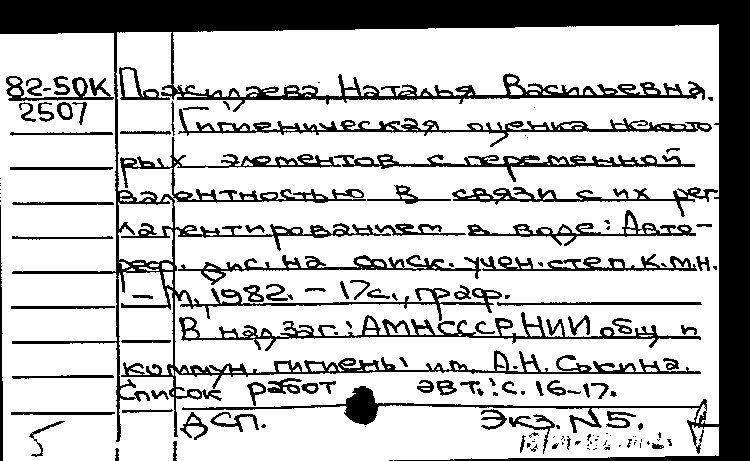 82-50К Пожилаева, Наталья Васильевна.
2507
Гигиеническая оценка некото-
рых элементов с переменной
валентностью в связи с их рег-
ламентированием в воде: Авто-
реф. дис. на соиск. учен. степ. к.м.н.
- М., 1982. - 17 с., граф.
В надзаг.: АМН СССР, НИИ общ и
коммун. гигиены им. А.Н. Сысина.
Список работ авт.: с. 16-17.
ДСП. Экз. N5.
5